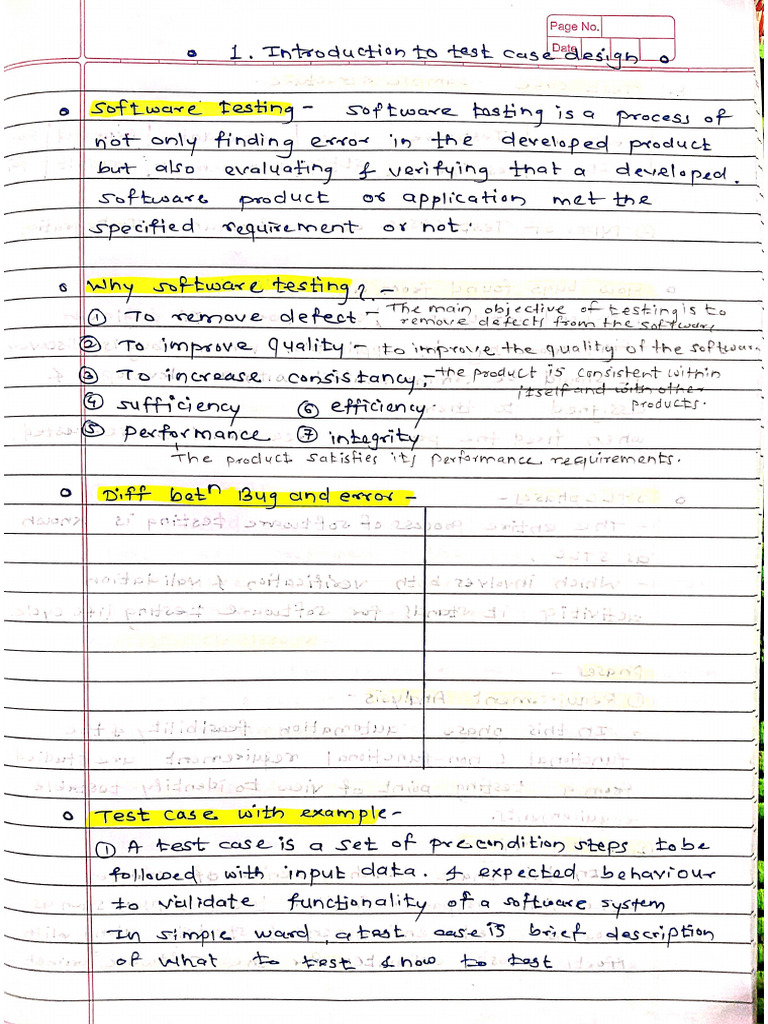 Page No.
Date
1. Introduction to test case design
Software testing - Software testing is a process of
not only finding error in the developed product
but also evaluating & verifying that a developed.
software product or application met the
specified requirement or not.
Why software testing? -
① To remove defect - The main objective of testing is to
remove defects from the software,
② To improve quality - to improve the quality of the software.
③ To increase consistancy, - the product is consistent within
itself and with other
products.
④ sufficiency ⑥ efficiency.
⑤ performance ⑦ integrity
The product satisfies its performance requirements.
Diff betn Bug and error -
Test case with example -
① A test case is a set of precondition steps tobe
followed with input data. & expected behaviour
to validate functionality of a software system
In simple ward, a test case is brief description
of what to test & how to test